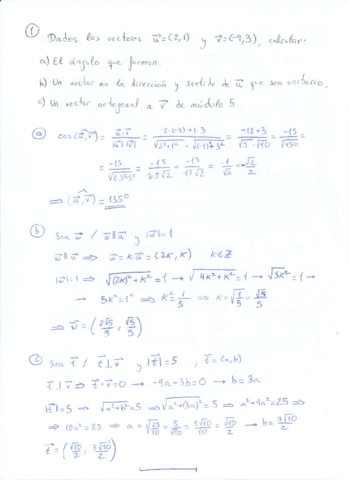 ① Dados los vectores u⃗=(2,1) y v⃗=(-9,3), calcular:
a) El ángulo que forman.
b) Un vector en la dirección y sentido de u⃗ que sea unitario.
c) Un vector ortogonal a v⃗ de módulo 5.
ⓐ cos(u⃗,v⃗) = u⃗·v⃗ / |u⃗|·|v⃗| = 2·(-9)+1·3 / √2²+1² · √(-9)²+3² = -18+3 / √5·√90 = -15 / √450 =
= -15 / √2·3²·5² = -15 / 3·5√2 = -15 / 15√2 = -1 / √2 = -√2 / 2
⇒ (u⃗,v⃗) = 135°
ⓑ Sea w⃗ / w⃗∥u⃗ y |w⃗|=1
w⃗∥u⃗ ⇒ w⃗=K·u⃗=(2K,K) K∈Z
|w⃗|=1 → √(2K)²+K² = 1 → √4K²+K² = 1 → √5K² = 1 →
→ 5K²=1² ⇒ K²=1/5 ⇒ K=√1/5 = √5/5
⇒ v⃗ = (2√5/5, √5/5)
ⓒ Sea t⃗ / t⃗⊥v⃗ y |t⃗|=5, t⃗=(a,b)
t⃗⊥v⃗ ⇒ t⃗·v⃗=0 → -9a+3b=0 → b=3a
|t⃗|=5 ⇒ √a²+b² = 5 ⇒ √a²+(3a)² = 5 ⇒ a²+9a²=25 ⇒
⇒ 10a²=25 ⇒ a=√25/10 = 5/√10 = 5√10/10 = √10/2 → b=3√10/2
t⃗ = (√10/2, 3√10/2)